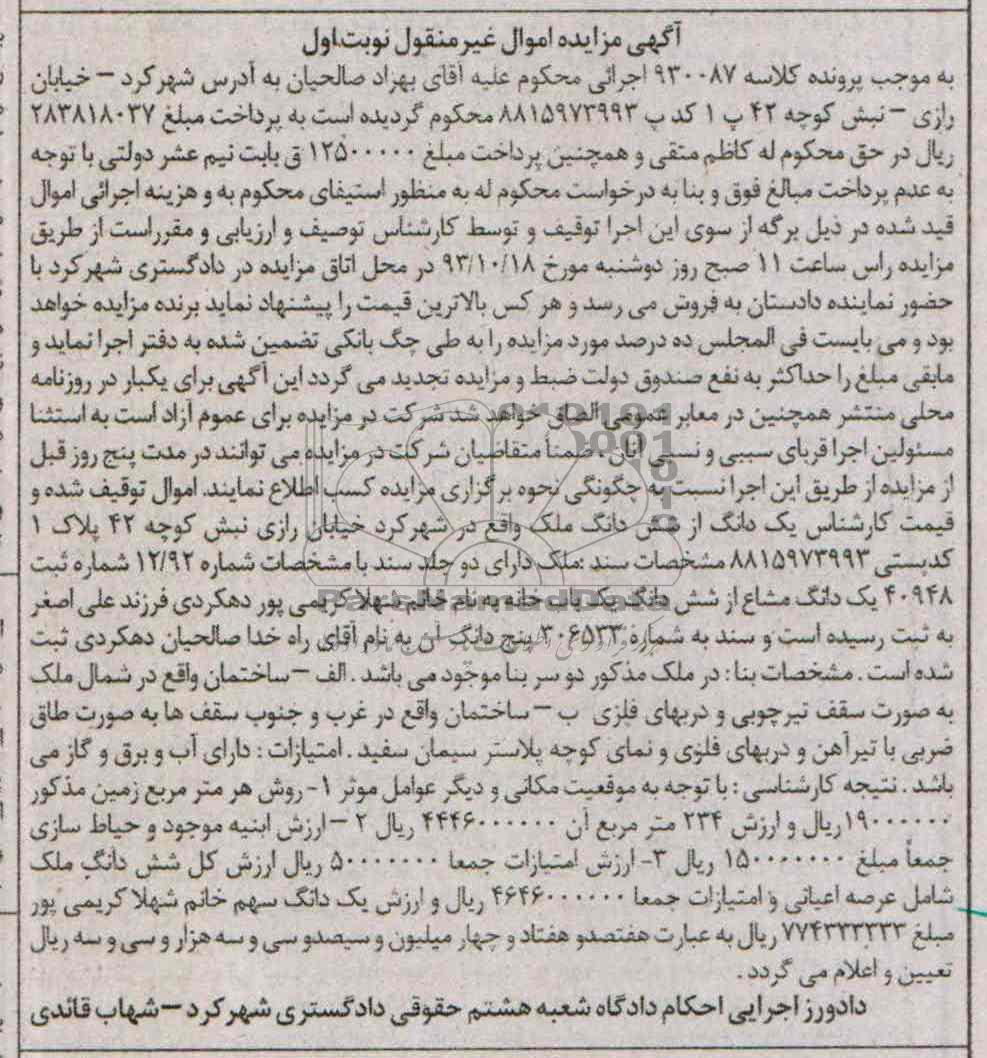 آگهی مزایده اموال غیر منقول نوبت اول
به موجب پرونده کلاسه ۹۳۰۰۸۷ اجرائی محکوم علیه آقای بهزاد صالحیان به آدرس شهرکرد – خیابان
رازی – نبش کوچه ۴۲ پ ۱ کد پ ۸۸۱۵۹۷۳۹۹۳ محکوم گردیده است به پرداخت مبلغ ۲۸۳۸۱۸۰۳۷
ریال در حق محکوم له کاظم متقی و همچنین پرداخت مبلغ ۱۲۵۰۰۰۰۰ ق بابت نیم عشر دولتی با توجه
به عدم پرداخت مبالغ فوق و بنا به درخواست محکوم له به منظور استیفای محکوم به و هزینه اجرائی اموال
قید شده در ذیل برگه از سوی این اجرا توقیف و توسط کارشناس توصیف و ارزیابی و مقرر است از طریق
مزایده راس ساعت ۱۱ صبح روز دوشنبه مورخ ۹۳/۱۰/۱۸ در محل اتاق مزایده در دادگستری شهرکرد با
حضور نماینده دادستان به فروش می رسد و هر کس بالاترین قیمت را پیشنهاد نماید برنده مزایده خواهد
بود و می بایست فی المجلس ده درصد مورد مزایده را به طی چگ بانکی تضمین شده به دفتر اجرا نماید و
مابقی مبلغ را حداکثر به نفع صندوق دولت ضبط و مزایده تجدید می گردد این آگهی برای یکبار در روزنامه
محلی منتشر همچنین در معابر عمومی الصاق خواهد شد شرکت در مزایده برای عموم آزاد است به استثنا
مسئولین اجرا قربای سببی و نسبی آنان . ضمناً متقاضیان شرکت در مزایده می توانند در مدت پنج روز قبل
از مزایده از طریق این اجرا نسبت به چگونگی نحوه برگزاری مزایده کسب اطلاع نمایند. اموال توقیف شده و
قیمت کارشناس یک دانگ از شش دانگ ملک واقع در شهرکرد خیابان رازی نبش کوچه ۴۲ پلاک ۱
کدپستی ۸۸۱۵۹۷۳۹۹۳ مشخصات سند :ملک دارای دو جلد سند با مشخصات شماره ۱۲/۹۲ شماره ثبت
۴۰۹۴۸ یک دانگ مشاع از شش دانگ یک باب خانه به نام خانم شهلا کریمی پور دهکردی فرزند علی اصغر
به ثبت رسیده است و سند به شماره ۳۰۶۵۳۳ پنج دانگ آن به نام آقای راه خدا صالحیان دهکردی ثبت
شده است . مشخصات بنا : در ملک مذکور دو سر بنا موجود می باشد . الف – ساختمان واقع در شمال ملک
به صورت سقف تیرچوبی و دربهای فلزی ب – ساختمان واقع در غرب و جنوب سقف ها به صورت طاق
ضربی با تیرآهن و دربهای فلزی و نمای کوچه پلاستر سیمان سفید . امتیازات : دارای آب و برق و گاز می
باشد . نتیجه کارشناسی : با توجه به موقعیت مکانی و دیگر عوامل موثر ۱- روش هر متر مربع زمین مذکور
۱۹۰۰۰۰۰۰ ریال و ارزش ۲۳۴ متر مربع آن ۴۴۴۶۰۰۰۰۰۰ ریال ۲ – ارزش ابنیه موجود و حیاط سازی
جمعاً مبلغ ۱۵۰۰۰۰۰۰۰ ریال ۳- ارزش امتیازات جمعا ۵۰۰۰۰۰۰۰ ریال ارزش کل شش دانگ ملک
شامل عرصه اعیانی و امتیازات جمعا ۴۶۴۶۰۰۰۰۰۰ ریال و ارزش یک دانگ سهم خانم شهلا کریمی پور
مبلغ ۷۷۴۳۳۳۳۳۳ ریال به عبارت هفتصدو هفتاد و چهار میلیون و سیصدو سی و سه هزار و سی و سه ریال
تعیین و اعلام می گردد .
دادورز اجرایی احکام دادگاه شعبه هشتم حقوقی دادگستری شهرکرد – شهاب قائدی
ParsNamadData